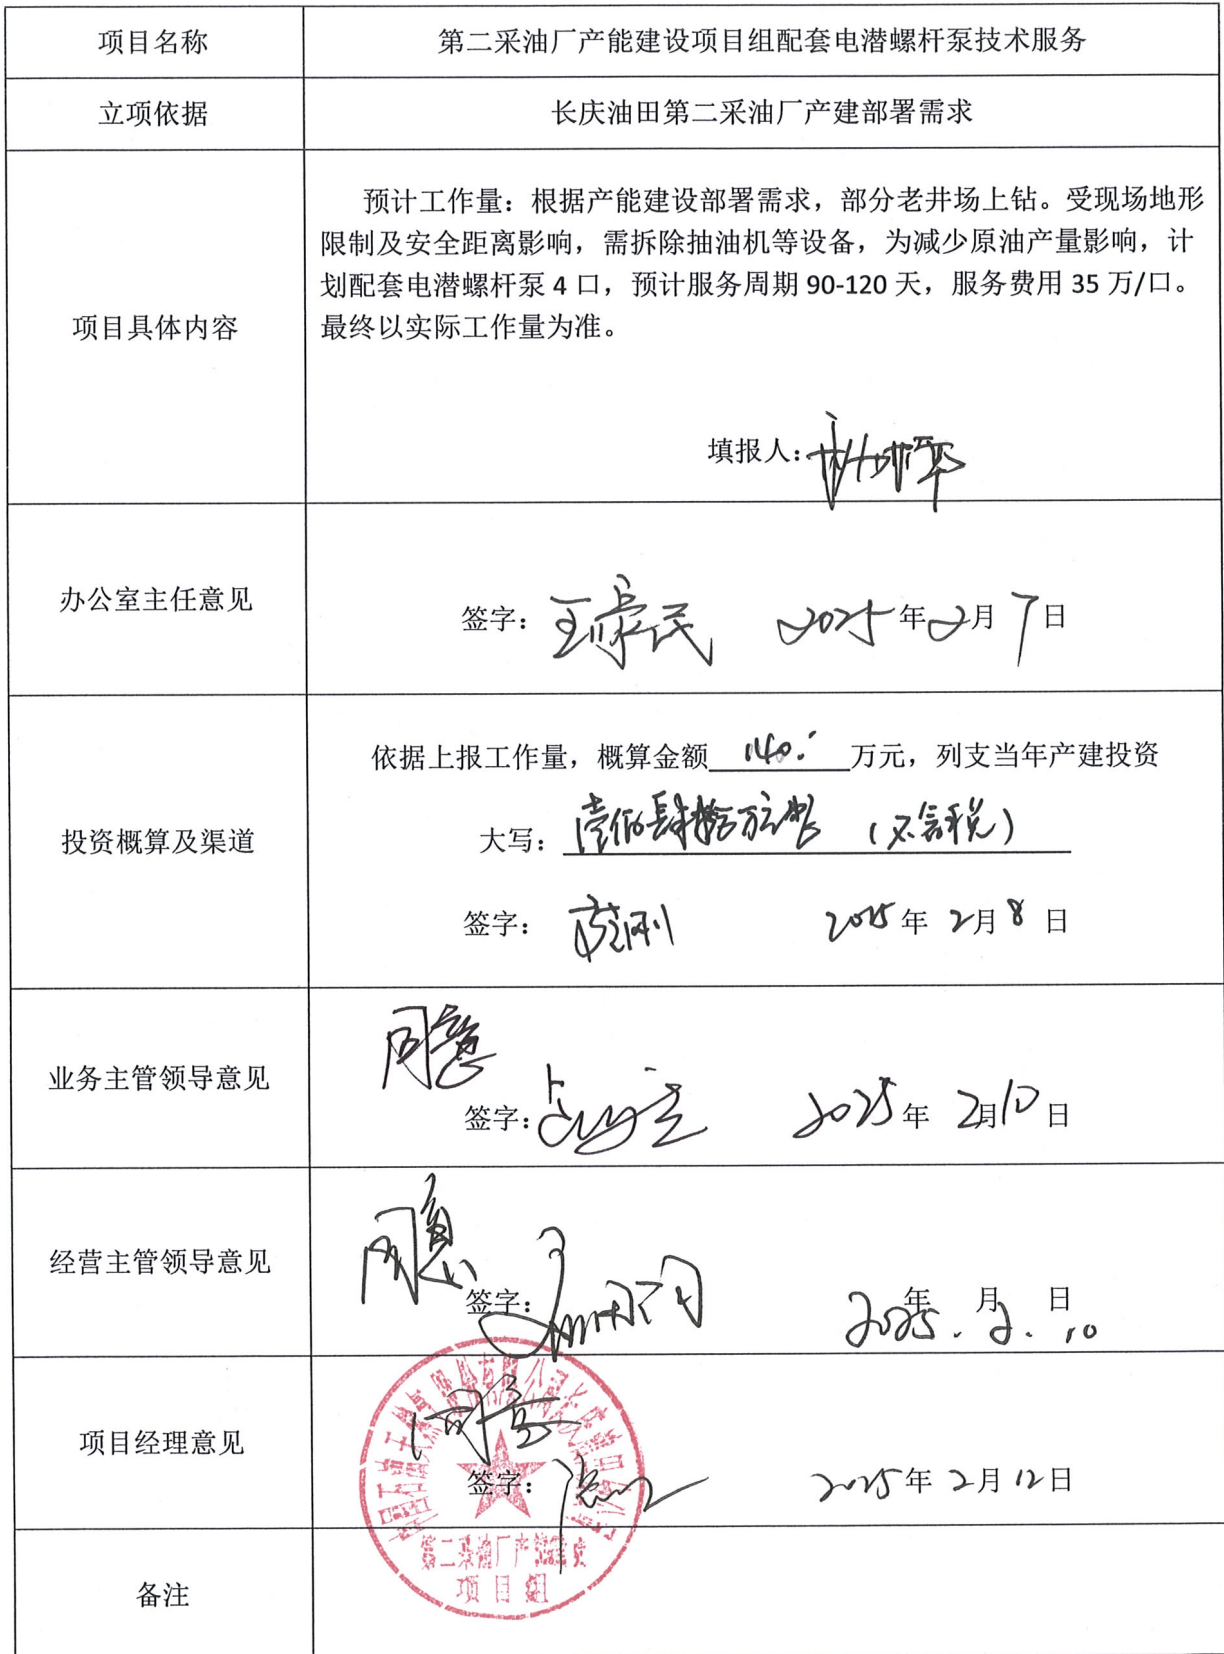 项目名称
第二采油厂产能建设项目组配套电潜螺杆泵技术服务
立项依据
长庆油田第二采油厂产建部署需求
项目具体内容
预计工作量：根据产能建设部署需求，部分老井场上钻。受现场地形
限制及安全距离影响，需拆除抽油机等设备，为减少原油产量影响，计
划配套电潜螺杆泵 4 口，预计服务周期 90-120 天，服务费用 35 万/口。
最终以实际工作量为准。
填报人：
办公室主任意见
签字： 2025 年 2 月 7 日
投资概算及渠道
依据上报工作量，概算金额 140. 万元，列支当年产建投资
大写：壹佰肆拾万元整 （不含税）
签字： 2025 年 2 月 8 日
业务主管领导意见
同意
签字： 2025 年 2 月 10 日
经营主管领导意见
同意
签字： 年 月 日
2025. 2. 10
项目经理意见
同意
签字： 2025 年 2 月 12 日
第二采油厂产能建设
项目组
备注